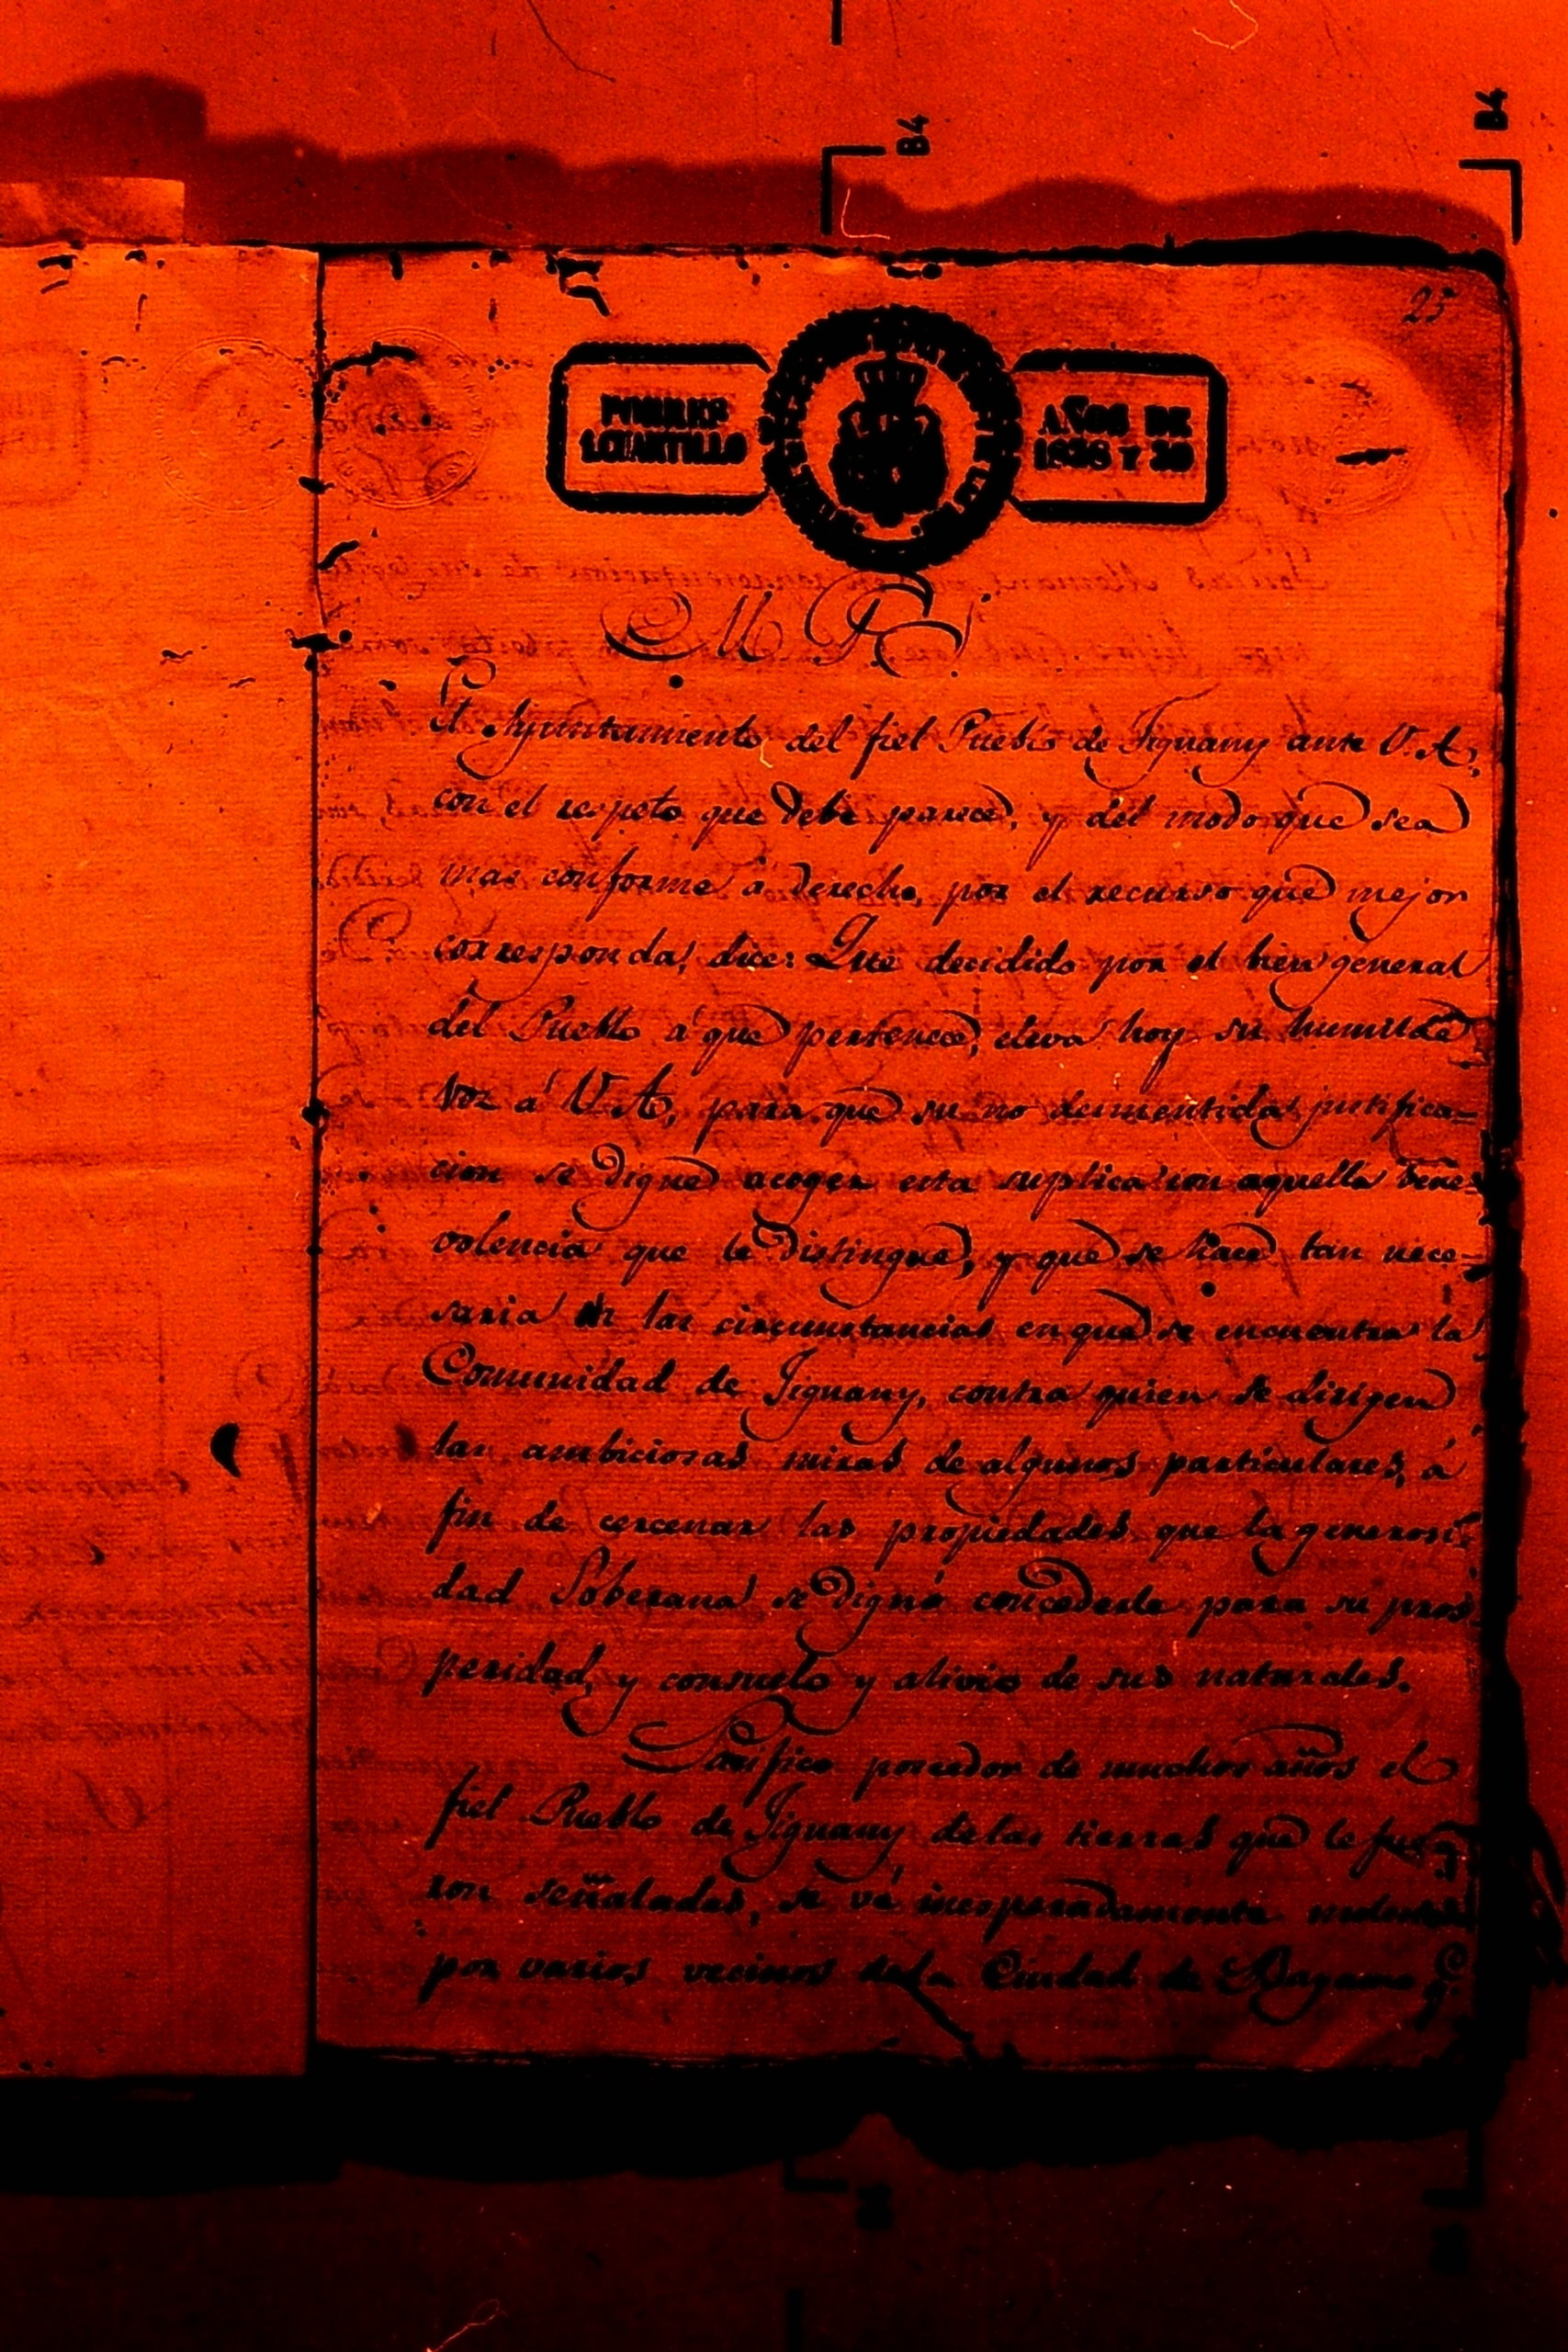 25
POBRES
1.CUARTILLO
AÑOS DE
1838 Y 39
M. P. S.
El Ayuntamiento del fiel Pueblo de Jiguany ante V. A.
con el respeto que debe parece, y del modo que sea
mas conforme á derecho, por el recurso que mejor
corresponda, dice: Que decidido por el bien general
del Pueblo á que pertenece, eleva hoy su humilde
voz á V. A., para que su no desmentida justifica=
cion se digne acoger esta suplica con aquella bene=
volencia que le distingue, y que se hace tan nece=
saria en las circunstancias en que se encuentra la
Comunidad de Jiguany, contra quien se dirigen
las ambiciosas miras de algunos particulares, á
fin de cercenar las propiedades que la generosi=
dad Soberana se dignó concederle para su pros=
peridad, y consuelo y alivio de sus naturales.
Pacifico poseedor de muchos años el
fiel Pueblo de Jiguany de las tierras que le fue=
ron señaladas, se vé inesperadamente
por varios vecinos de la Ciudad de Bayamo q.e
B4
B4